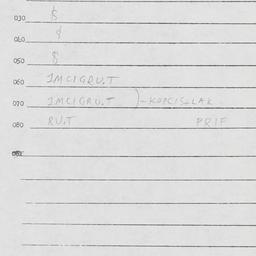 030 $
040 $
050 $
060 IMCIGRU.T
070 IMCIGRU.T )-KOPCISLAK
080 RU.T PRIF